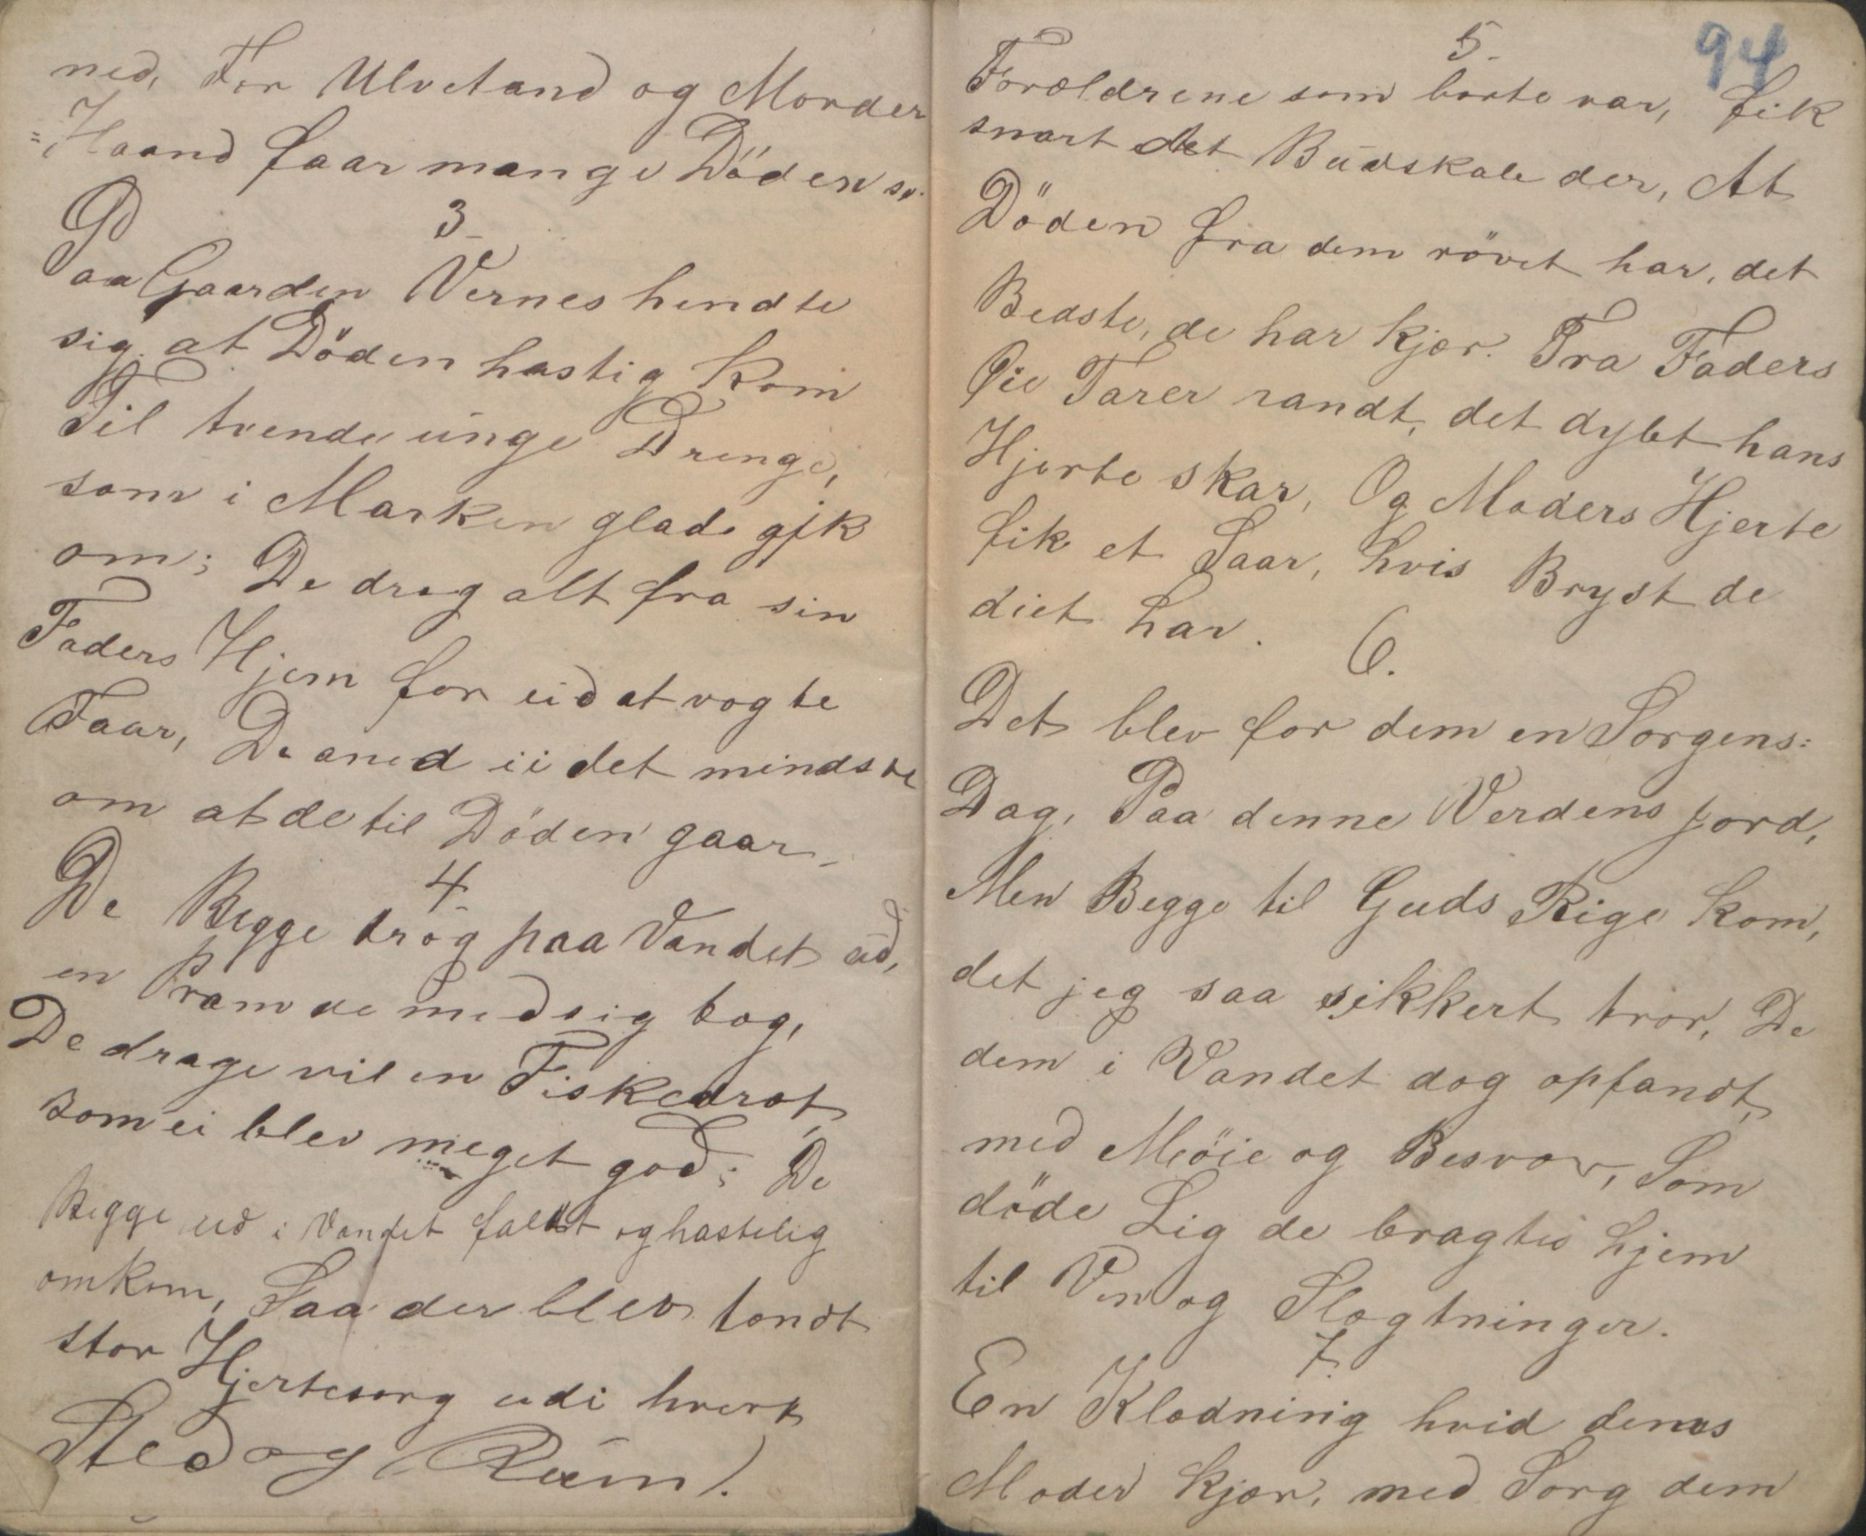 ned, For Ulvetand og Morder
=Haand faar mange Döden se.
3
Paa Gaarden Vernes hendte
sig. at Döden hastig kom
Til tvende unge Drenge,
som i Marken glade gik
om; De drog alt fra sin
Faders Hjem for ud at vogte
Faar, De aned ei det mindste
om at de til Döden gaar,
4
De Begge drog paa Vandet ud,
en Pram de med sig tog,
De drage vil en Fiskedræt
som ei blev meget god; De
Begge ud i Vandet faldt og hastelig
omkom, Saa der blev tændt
stor Hjertesorg udi hvert
Sted og Rum.
94
5
Forældrene som borte var, fik
snart det Budskab der, At
Döden fra dem rövet har, det
Bedste, de har kjær. Fra Faders
Öie Tarer randt, det dybt hans
Hjerte skar, Og Moders Hjerte
fik et Saar, hvis Bryst de
diet har.
6.
Det blev for dem en Sorgens=
Dag, Paa denne Verdens Jord,
Men Begge til Guds Rige kom,
det jeg saa sikkert tror, De
dem i Vandet dog opfandt,
med Möie og Besvær, Som
döde Lig de bragtes hjem
til Ven og Slægtninger.
7
En Klædning hvid deres
Moder kjær, med Sorg dem